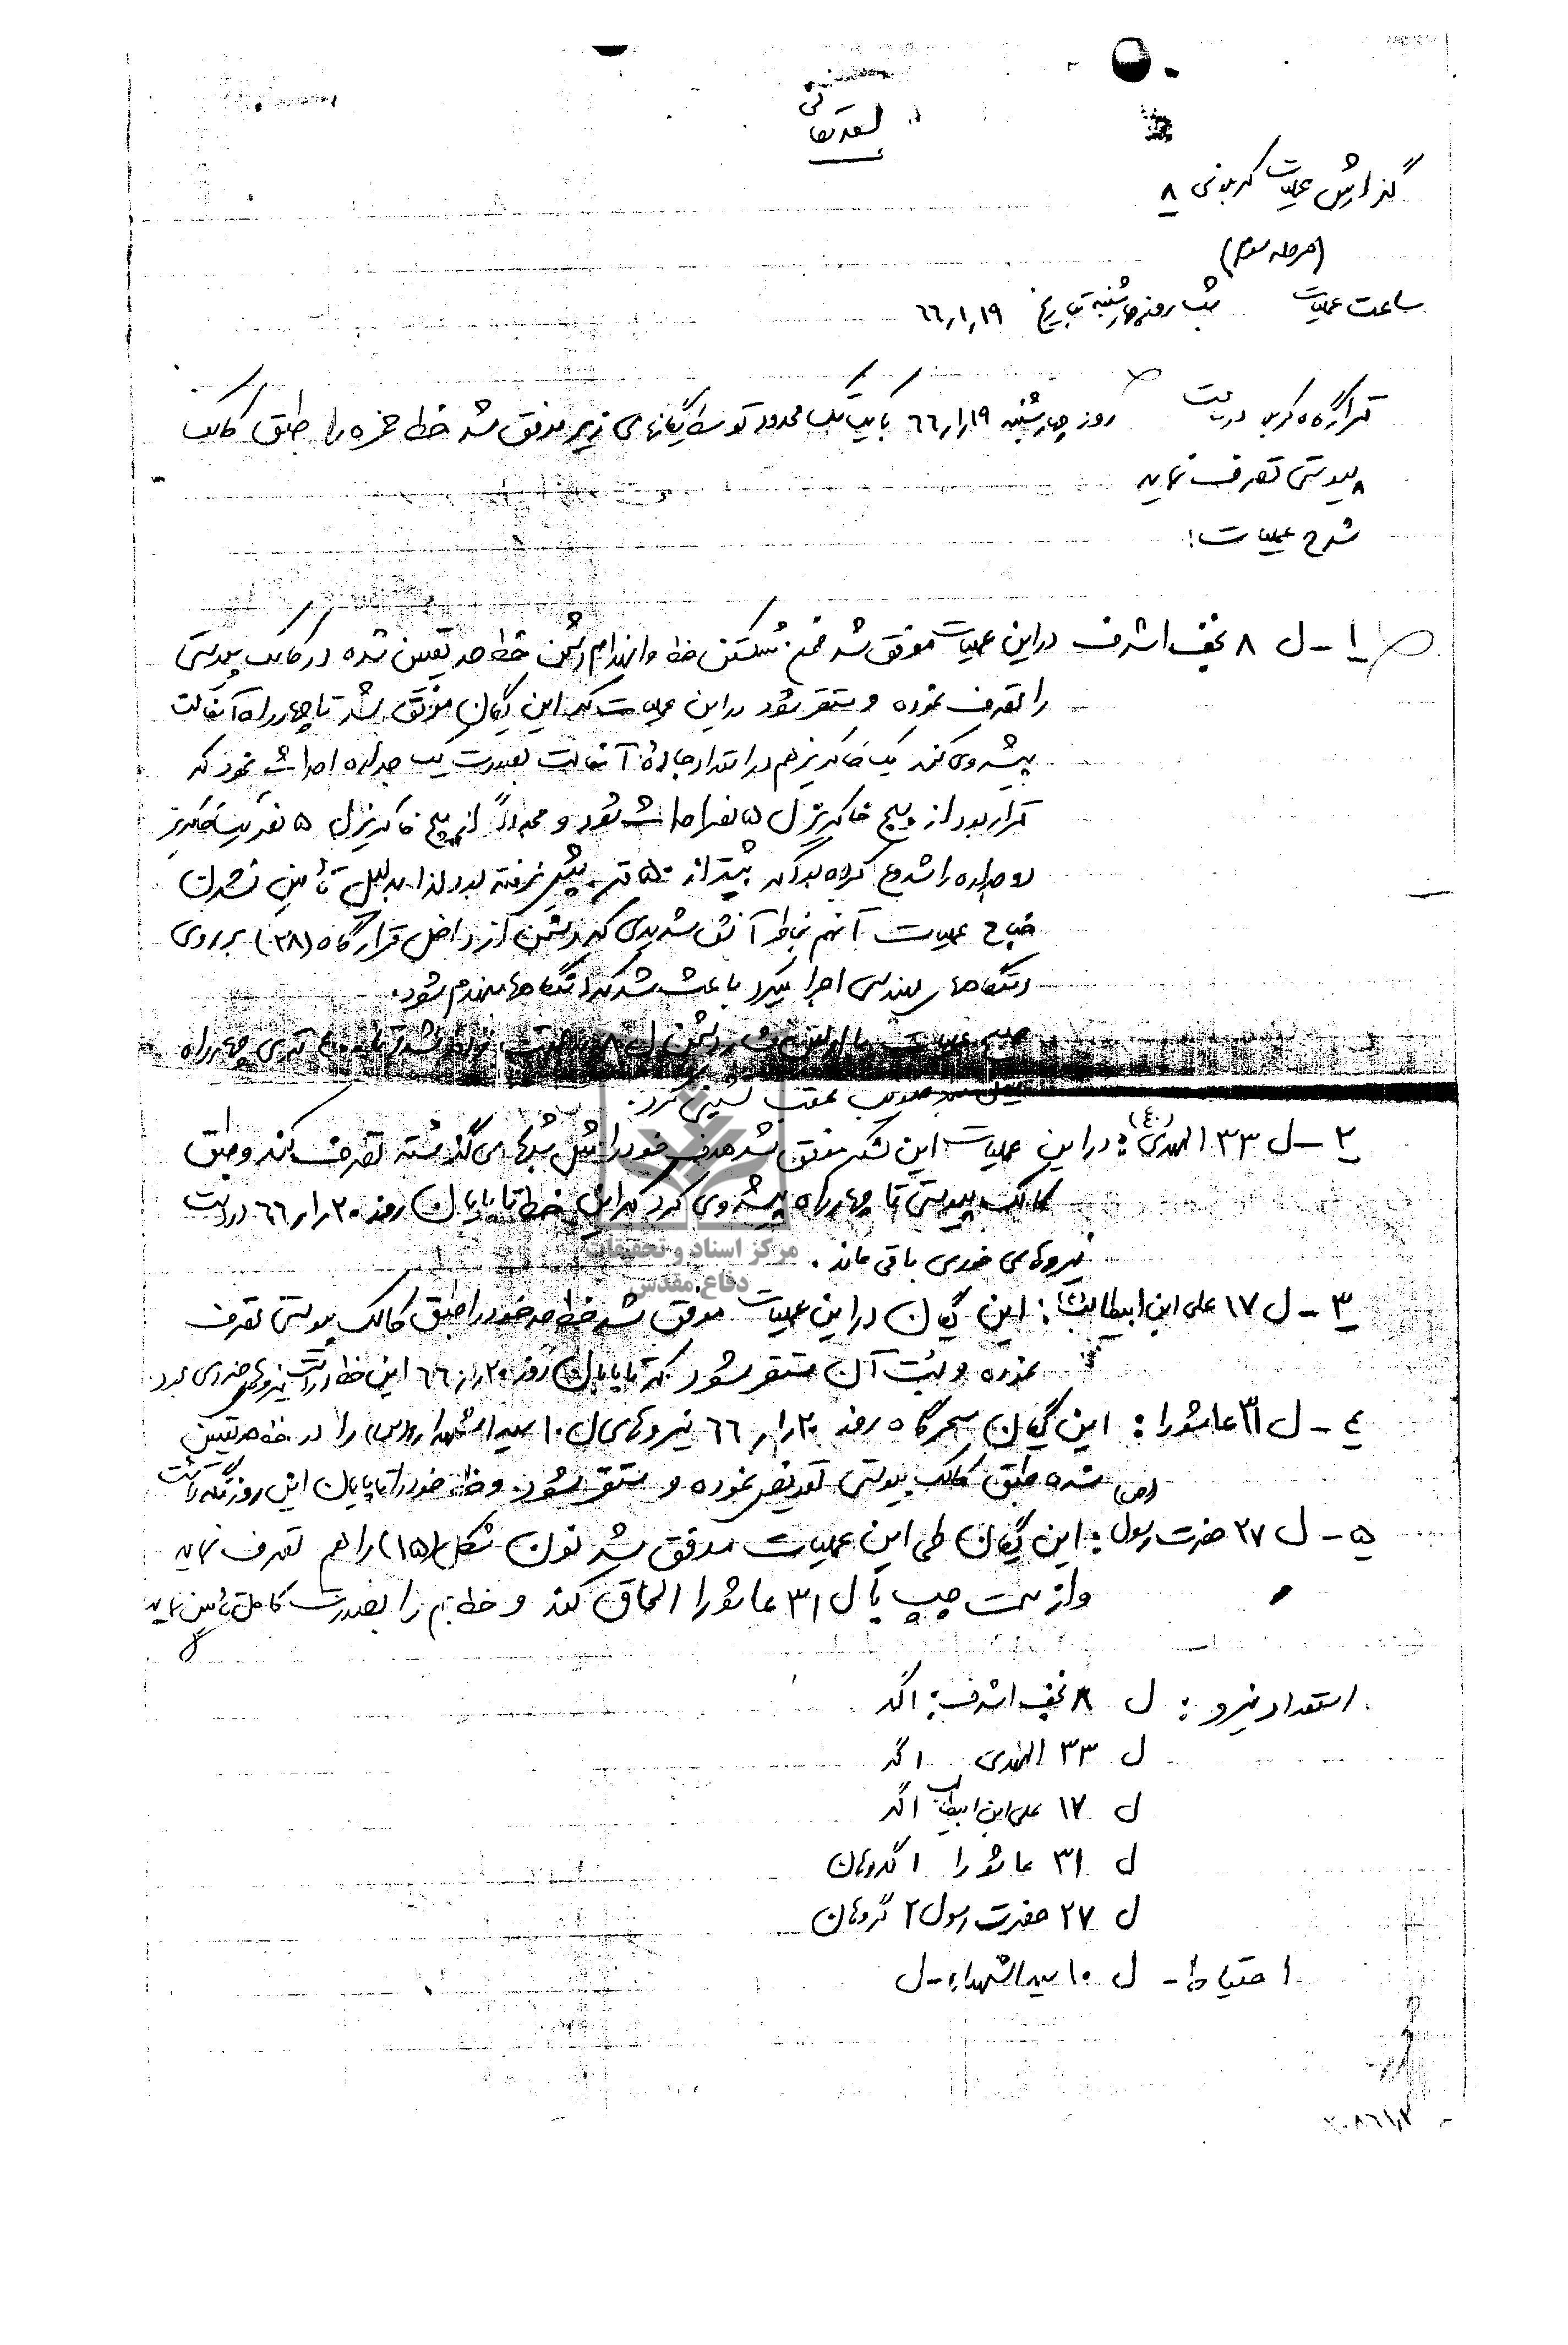 بسمه تعالی
گزارش عملیات کربلای ۸
(مرحله سوم)
ساعت عملیات شب روز چهارشنبه بتاریخ ۶۶/۱/۱۹
قرارگاه کربلا در ساعت روز چهارشنبه ۶۶/۱/۱۹ با یک تک محدود توسط یگانهای زیر موفق شد خط خمره را طبق کالک
پیوستی تصرف نماید
شرح عملیات:
۱- ل ۸ نجف اشرف در این عملیات موفق شد ضمن شکستن خط و انهدام دشمن خط حد تعیین شده در کالک پیوستی
را تصرف نموده و مستقر شود در این عملیات که این یگان موفق شد تا چهارراه آسفالت
پیشروی کند یک خاکریز هم در امتداد جاده آسفالت بصورت یک جداره احداث نمود که
قرار بود از پیچ خاکریز ل ۵ نصر احداث شود و مجدداً از پیچ خاکریز ل ۵ نصر یک خاکریز
دو جداره را شروع کرده بود که بیشتر از ۵۰ متر پیش نرفته بود لذا بدلیل تأمین نشدن
جناح عملیات آنهم بخاطر آتش شدیدی که دشمن از داخل قرارگاه (۳۸) بر روی
دستگاههای مهندسی اجرا میکرد باعث شد که دستگاهها منهدم شود.
صبح عملیات با اولین فشار دشمن ل ۸ متری چهارراه
عقب نشینی کرد.
۲- ل ۳۳ المهدی: در این عملیات این لشکر موفق شد هدف خود را مثل شبهای گذشته تصرف کند و طبق
کالک پیوستی تا چهارراه پیشروی کرد که این خط تا پایان روز ۶۶/۱/۲۰ در دست
نیروهای خودی باقی ماند.
۳- ل ۱۷ علی ابن ابیطالب (ع): این یگان در این عملیات موفق شد خط حد خود را طبق کالک پیوستی تصرف
نموده و پشت آن مستقر شود که تا پایان روز ۶۶/۱/۲۰ این خط در دست نیروهای خودی بود
۴- ل ۳۱ عاشورا: این یگان سحرگاه روز ۶۶/۱/۲۰ نیروهای ل ۱۰ سیدالشهداء را در خط حد تعیین
شده طبق کالک پیوستی تعویض نموده و مستقر شود. و خط خود را تا پایان این روز نگه داشت
۵- ل ۲۷ حضرت رسول (ص): این یگان طی این عملیات موفق شد نون شکل (۱۵) را هم تصرف نماید
و از سمت چپ با ل ۳۱ عاشورا الحاق کند و خط را بصورت کامل تأمین نماید
استعداد نیرو: ل ۸ نجف اشرف: ۱ گد
ل ۳۳ المهدی ۱ گد
ل ۱۷ علی ابن ابیطالب ۱ گد
ل ۳۱ عاشورا ۱ گروهان
ل ۲۷ حضرت رسول ۲ گروهان
احتیاط - ل ۱۰ سیدالشهداء - ل
مرکز اسناد و تحقیقات
دفاع مقدس